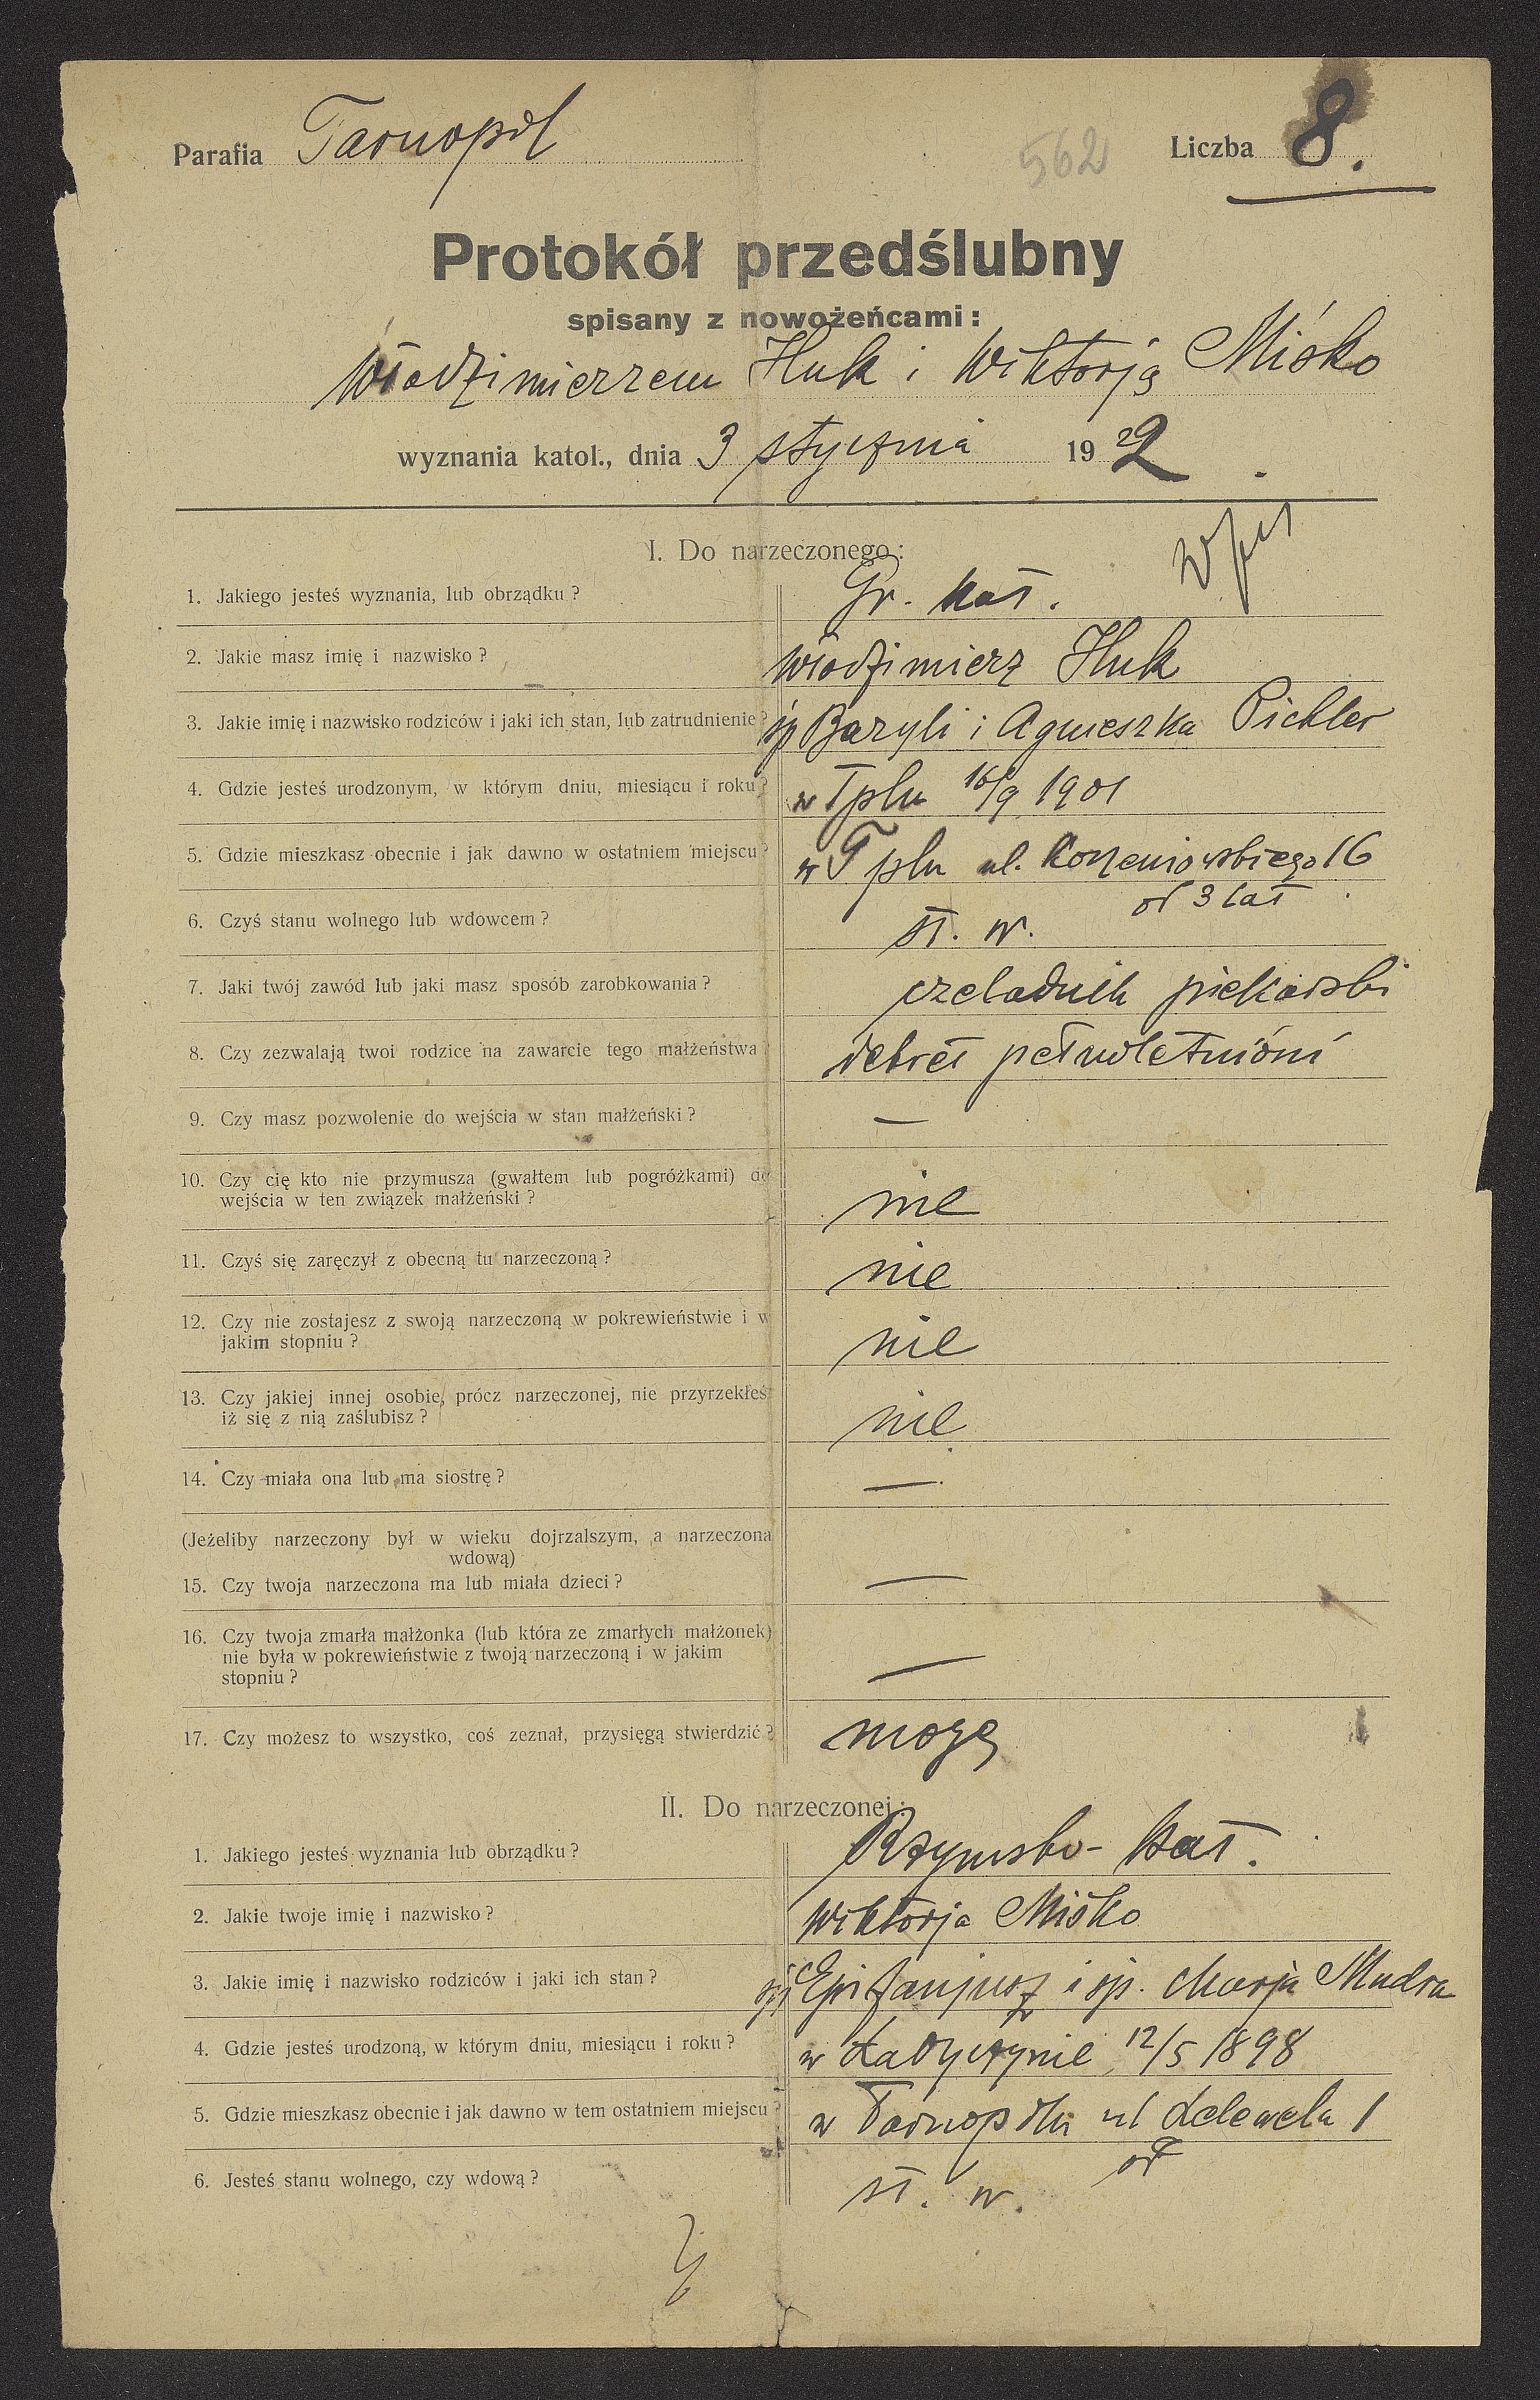 Parafia Tarnopol
562
Liczba 8.
Protokół przedślubny
spisany z nowożeńcami:
Włodzimierzem Huk i Wiktorją Miśko
wyznania katol., dnia 3 stycznia 1922
I. Do narzeczonego:
1. Jakiego jesteś wyznania, lub obrządku? Gr. kat.
2. Jakie masz imię i nazwisko? Włodzimierz Huk
3. Jakie imię i nazwisko rodziców i jaki ich stan, lub zatrudnienie? śp Bazyli i Agnieszka Pichler
4. Gdzie jesteś urodzonym, w którym dniu, miesiącu i roku? w Tplu 16/9 1901
5. Gdzie mieszkasz obecnie i jak dawno w ostatniem miejscu? w Tplu ul. Korzeniowskiego 16
od 3 lat
6. Czyś stanu wolnego lub wdowcem? st. w.
7. Jaki twój zawód lub jaki masz sposób zarobkowania? czeladnik piekarski
8. Czy zezwalają twoi rodzice na zawarcie tego małżeństwa? dekret pełnoletnióni
9. Czy masz pozwolenie do wejścia w stan małżeński? —
10. Czy cię kto nie przymusza (gwałtem lub pogróżkami) do
wejścia w ten związek małżeński? nie
11. Czyś się zaręczył z obecną tu narzeczoną? nie
12. Czy nie zostajesz z swoją narzeczoną w pokrewieństwie i w
jakim stopniu? nie
13. Czy jakiej innej osobie, prócz narzeczonej, nie przyrzekłeś
iż się z nią zaślubisz? nie
14. Czy miała ona lub ma siostrę? —
(Jeżeliby narzeczony był w wieku dojrzalszym, a narzeczona
wdową)
15. Czy twoja narzeczona ma lub miała dzieci? —
16. Czy twoja zmarła małżonka (lub która ze zmarłych małżonek)
nie była w pokrewieństwie z twoją narzeczoną i w jakim
stopniu? —
17. Czy możesz to wszystko, coś zeznał, przysięgą stwierdzić? mogę
II. Do narzeczonej:
1. Jakiego jesteś wyznania lub obrządku? Rzymsko-kat.
2. Jakie twoje imię i nazwisko? Wiktorja Miśko
3. Jakie imię i nazwisko rodziców i jaki ich stan? śp Epifanjusz i śp. Marja Mudra
4. Gdzie jesteś urodzoną, w którym dniu, miesiącu i roku? w Ładyczynie 12/5 1898
5. Gdzie mieszkasz obecnie i jak dawno w tem ostatniem miejscu? w Tarnopolu ul Lelewela 1
od
6. Jesteś stanu wolnego, czy wdową? st. w.